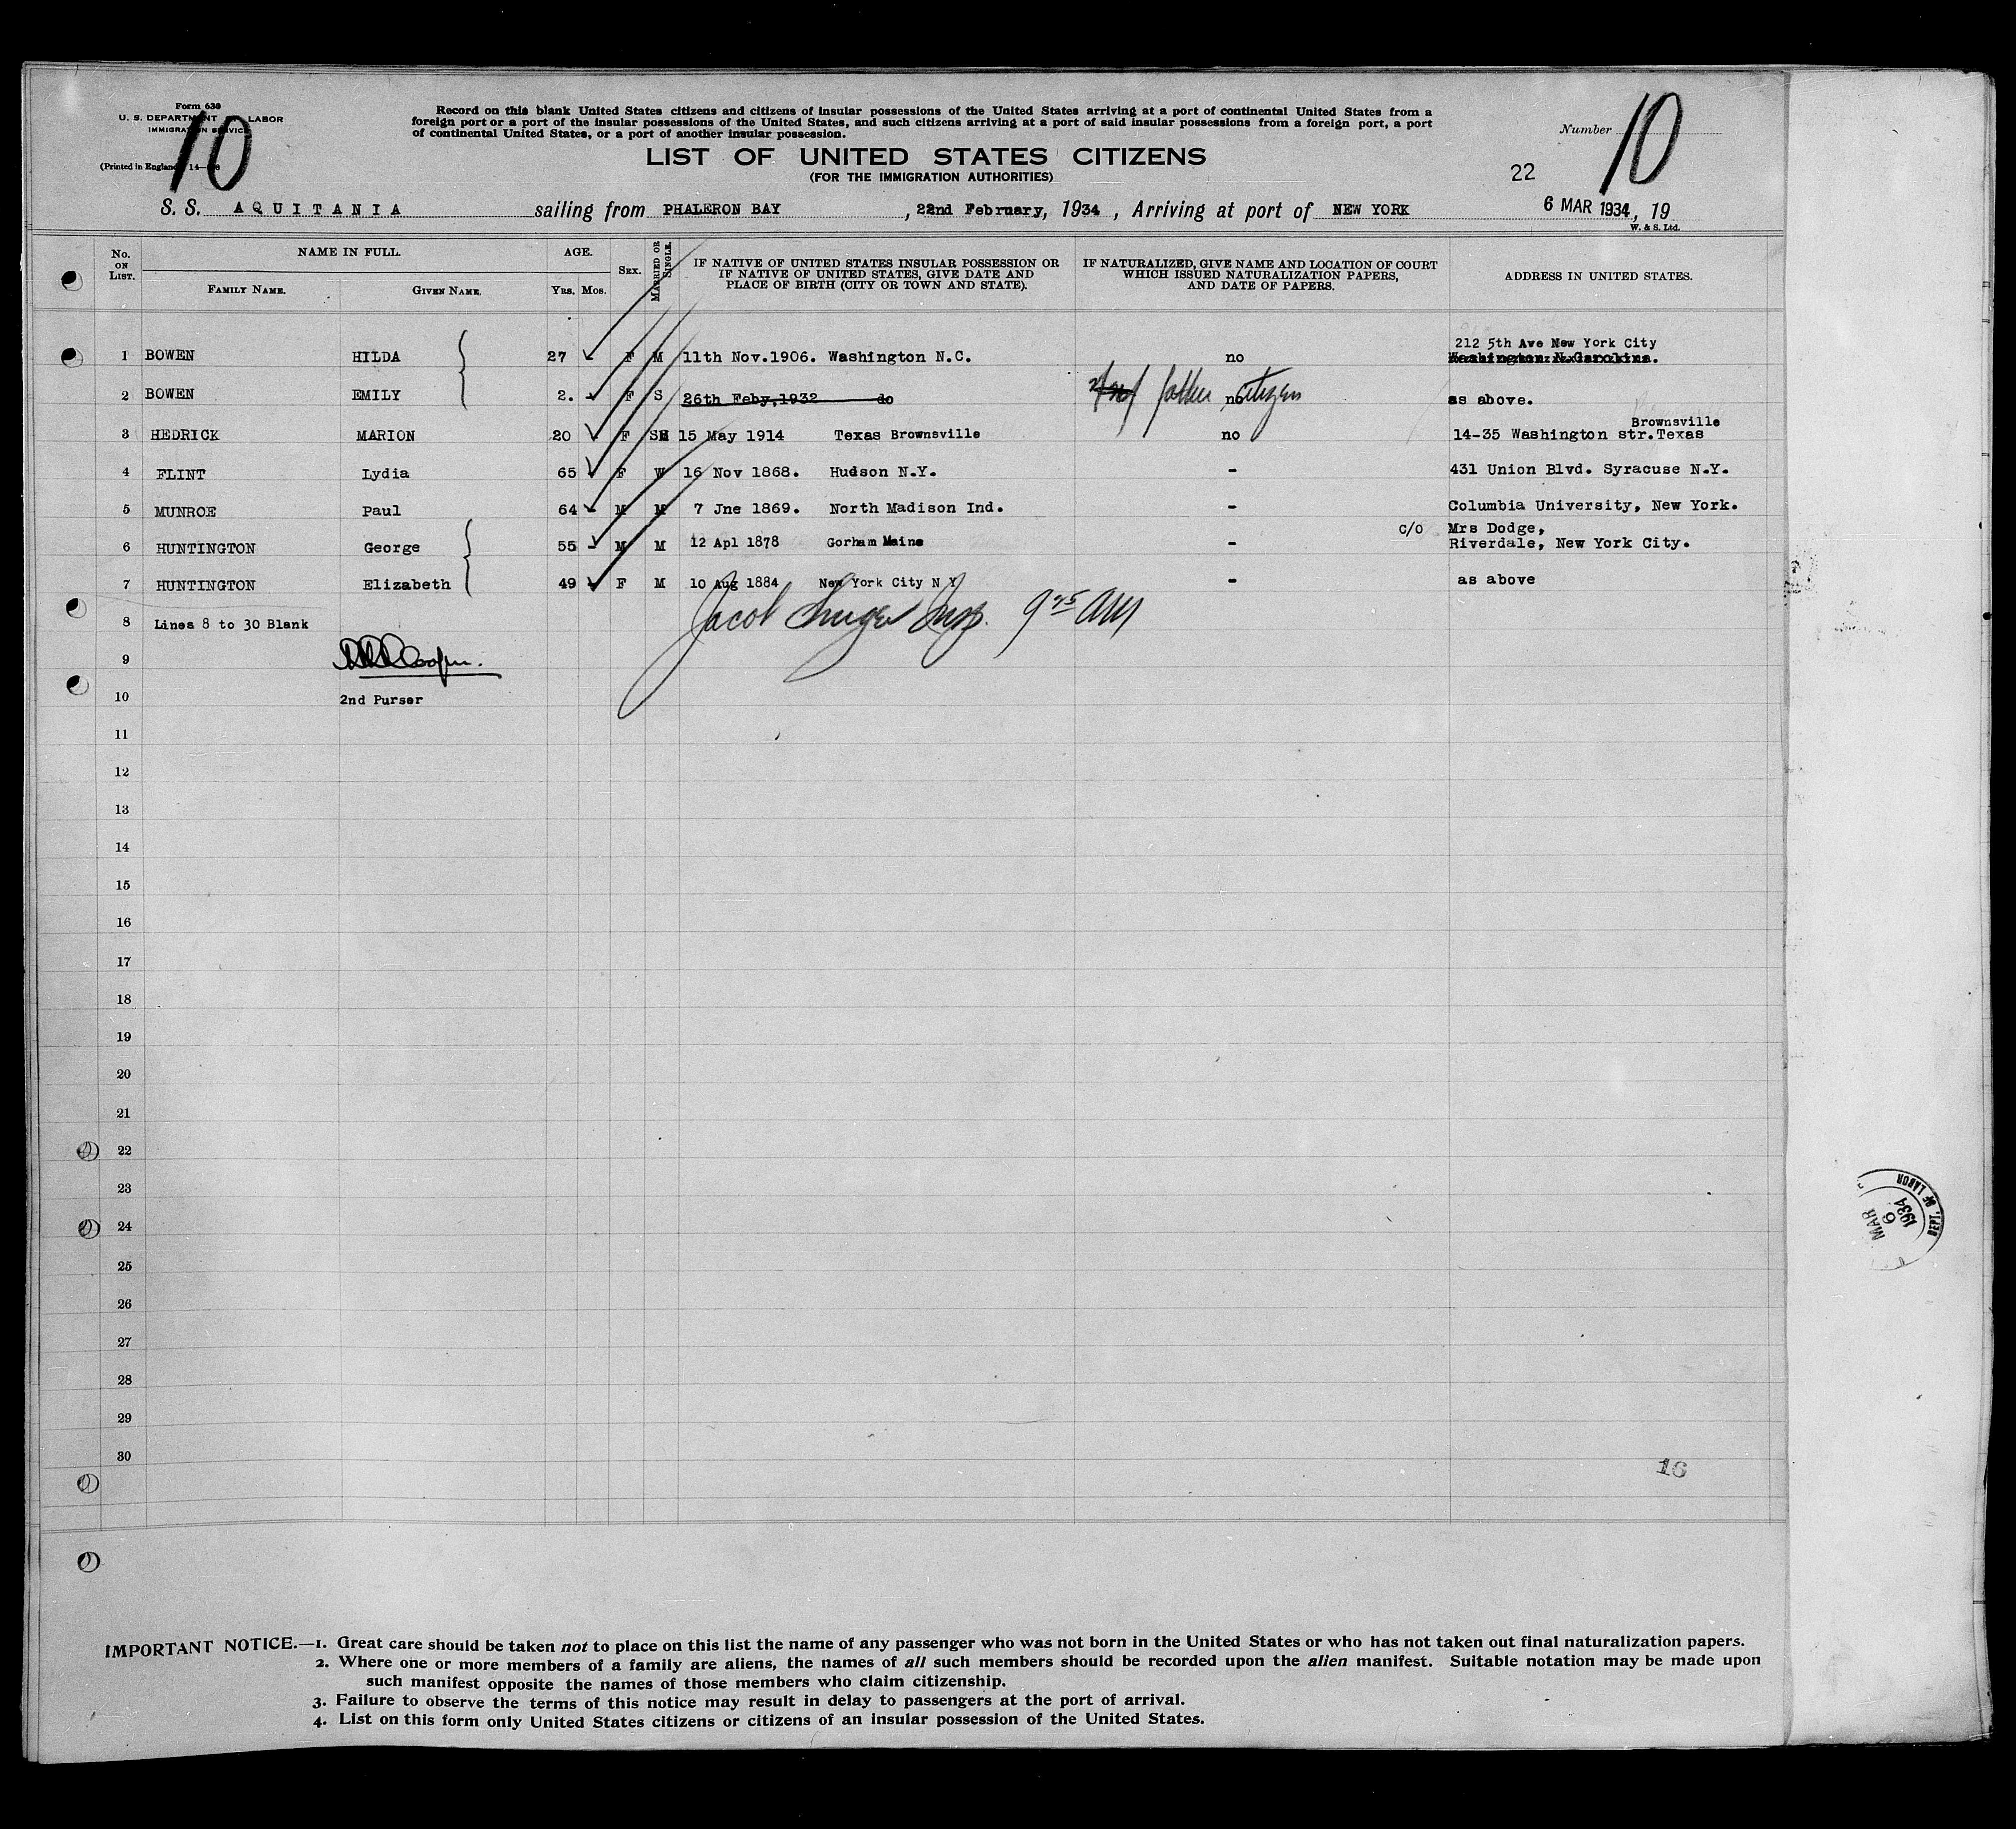 Form 630
U. S. DEPARTMENT LABOR
IMMIGRATION SERVICE
(Printed in England)
10
Record on this blank United States citizens and citizens of insular possessions of the United States arriving at a port of continental United States from a
foreign port or a port of the insular possessions of the United States, and such citizens arriving at a port of said insular possessions from a foreign port, a port
of continental United States, or a port of another insular possession.
LIST OF UNITED STATES CITIZENS
(FOR THE IMMIGRATION AUTHORITIES)
Number 10
22
S. S. AQUITANIA sailing from PHALERON BAY, 22nd February, 1934, Arriving at port of NEW YORK 6 MAR 1934, 19
W. & S. Ltd.
No. ON LIST. NAME IN FULL. AGE. SEX. MARRIED OR SINGLE. IF NATIVE OF UNITED STATES INSULAR POSSESSION OR IF NATIVE OF UNITED STATES, GIVE DATE AND PLACE OF BIRTH (CITY OR TOWN AND STATE). IF NATURALIZED, GIVE NAME AND LOCATION OF COURT WHICH ISSUED NATURALIZATION PAPERS, AND DATE OF PAPERS. ADDRESS IN UNITED STATES.
FAMILY NAME. GIVEN NAME. YRS. MOS.
212 5th Ave New York City
1 BOWEN HILDA 27 F M 11th Nov.1906. Washington N.C. no Washington N.Carolina.
2 BOWEN EMILY 2. F S 26th Feby,1932 do no father citizen as above.
Brownsville
3 HEDRICK MARION 20 F S 15 May 1914 Texas Brownsville no 14-35 Washington str.Texas
4 FLINT Lydia 65 F W 16 Nov 1868. Hudson N.Y. - 431 Union Blvd. Syracuse N.Y.
5 MUNROE Paul 64 M M 7 Jne 1869. North Madison Ind. - Columbia University, New York.
c/o Mrs Dodge,
6 HUNTINGTON George 55 M M 12 Apl 1878 Gorham Maine - Riverdale, New York City.
7 HUNTINGTON Elizabeth 49 F M 10 Aug 1884 New York City N Y - as above
8 Lines 8 to 30 Blank
Jacob Insp. 9 45 AM
9 Cooper.
10 2nd Purser
11
12
13
14
15
16
17
18
19
20
21
22
23
24
25
26
27
28
29
30
16
DEPT. OF LABOR
MAR 6 1934
IMPORTANT NOTICE.—1. Great care should be taken not to place on this list the name of any passenger who was not born in the United States or who has not taken out final naturalization papers.
2. Where one or more members of a family are aliens, the names of all such members should be recorded upon the alien manifest. Suitable notation may be made upon
such manifest opposite the names of those members who claim citizenship.
3. Failure to observe the terms of this notice may result in delay to passengers at the port of arrival.
4. List on this form only United States citizens or citizens of an insular possession of the United States.